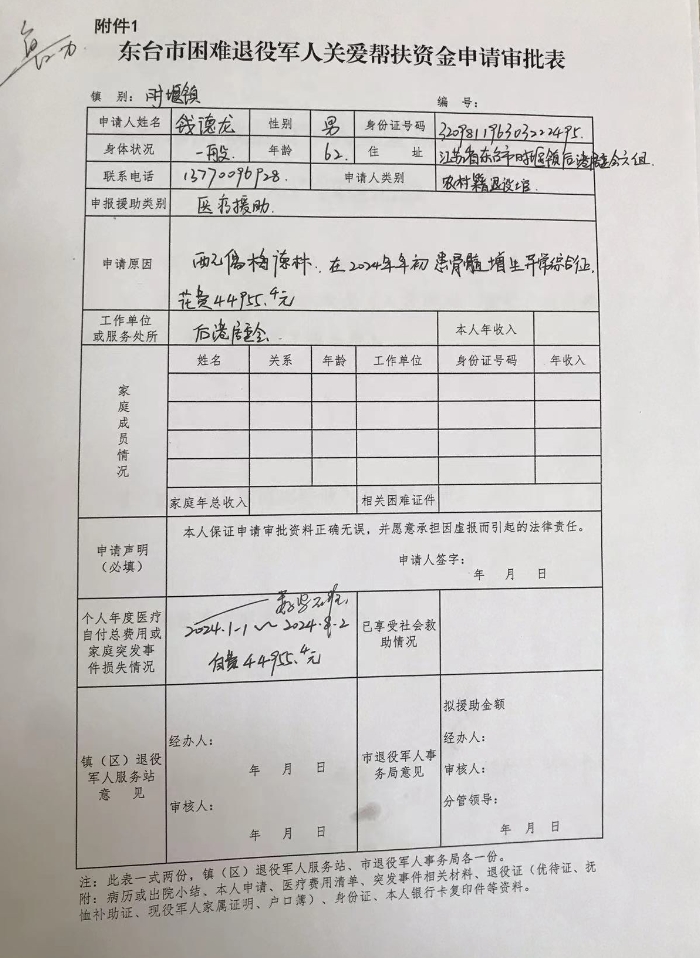 附件1
东台市困难退役军人关爱帮扶资金申请审批表
镇 别：时堰镇 编 号：
申请人姓名 钱德龙 性别 男 身份证号码 320981196303222495.
身体状况 一般. 年龄 62. 住 址 江苏省东台市时堰镇后港居委会六组
联系电话 13770096928. 申请人类别 农村籍退役士兵
申报援助类别 医疗援助.
申请原因 在2024年年初患骨髓增生异常综合征,
花费44955.4元
工作单位
或服务处所 后港居委会. 本人年收入
家庭成员情况 姓名 关系 年龄 工作单位 身份证号码 年收入
家庭年总收入 相关困难证件
申请声明
（必填） 本人保证申请审批资料正确无误，并愿意承担因虚报而引起的法律责任。
申请人签字：
年 月 日
个人年度医疗
自付总费用或
家庭突发事
件损失情况 2024.1-1～2024.8.2
自费44955.4元
已享受社会救
助情况
镇（区）退役
军人服务站
意 见 经办人：
年 月 日
审核人：
年 月 日
市退役军人事
务局意见 拟援助金额
经办人：
审核人：
分管领导：
年 月 日
注：此表一式两份，镇（区）退役军人服务站、市退役军人事务局各一份。
附：病历或出院小结、本人申请、医疗费用清单、突发事件相关材料、退役证（优待证、抚
恤补助证、现役军人家属证明、户口簿）、身份证、本人银行卡复印件等资料。